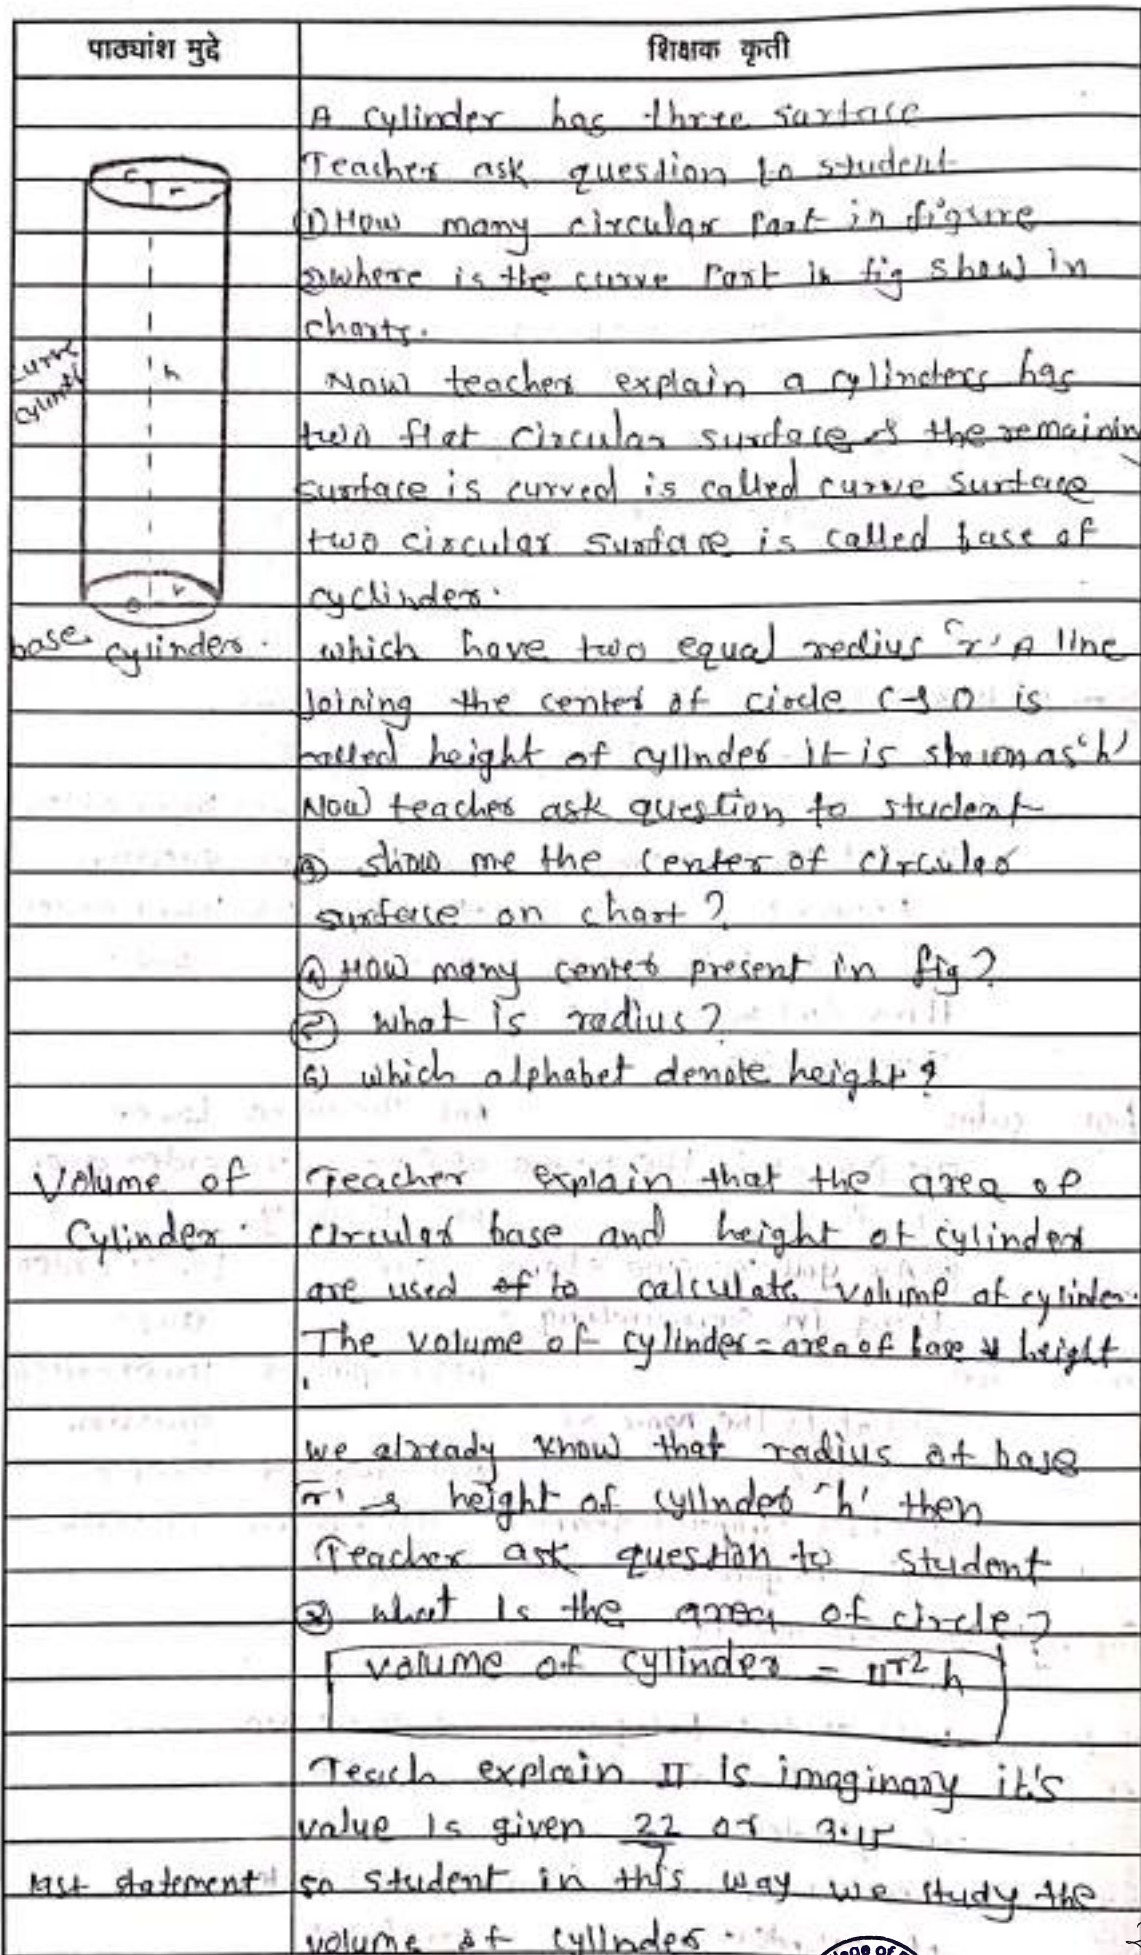 पाठ्यांश मुद्दे
शिक्षक कृती
A cylinder has three surface
Teacher ask question to student
① How many circular Part in figure
② where is the curve Part in fig show in
charts.
Now teacher explain a cylinders has
two flat circular surface & the remaining
surface is curved is called curve surface
two circular surface is called base of
cyclinder.
which have two equal redius 'r' A line
Joining the center of circle C & O is
called height of cylinder it is shown as 'h'
Now teacher ask question to student
③ show me the center of circular
surface on chart?
④ How many center present in fig?
⑤ what is radius?
6) which alphabet denote height?
C
r
h
curve
cylinder
O
r
base
cylinder.
Volume of
Cylinder.
Teacher explain that the area of
circular base and height of cylinder
are used of to calculate volume of cylinder.
The volume of cylinder = area of base × height
we already know that radius of base
'r' & height of cylinder 'h' then
Teacher ask question to student
what is the area of circle?
volume of cylinder = πr² h
Teach explain π is imaginary it's
value is given 22/7 or
last statement
so student in this way we study the
volume of cylinder.